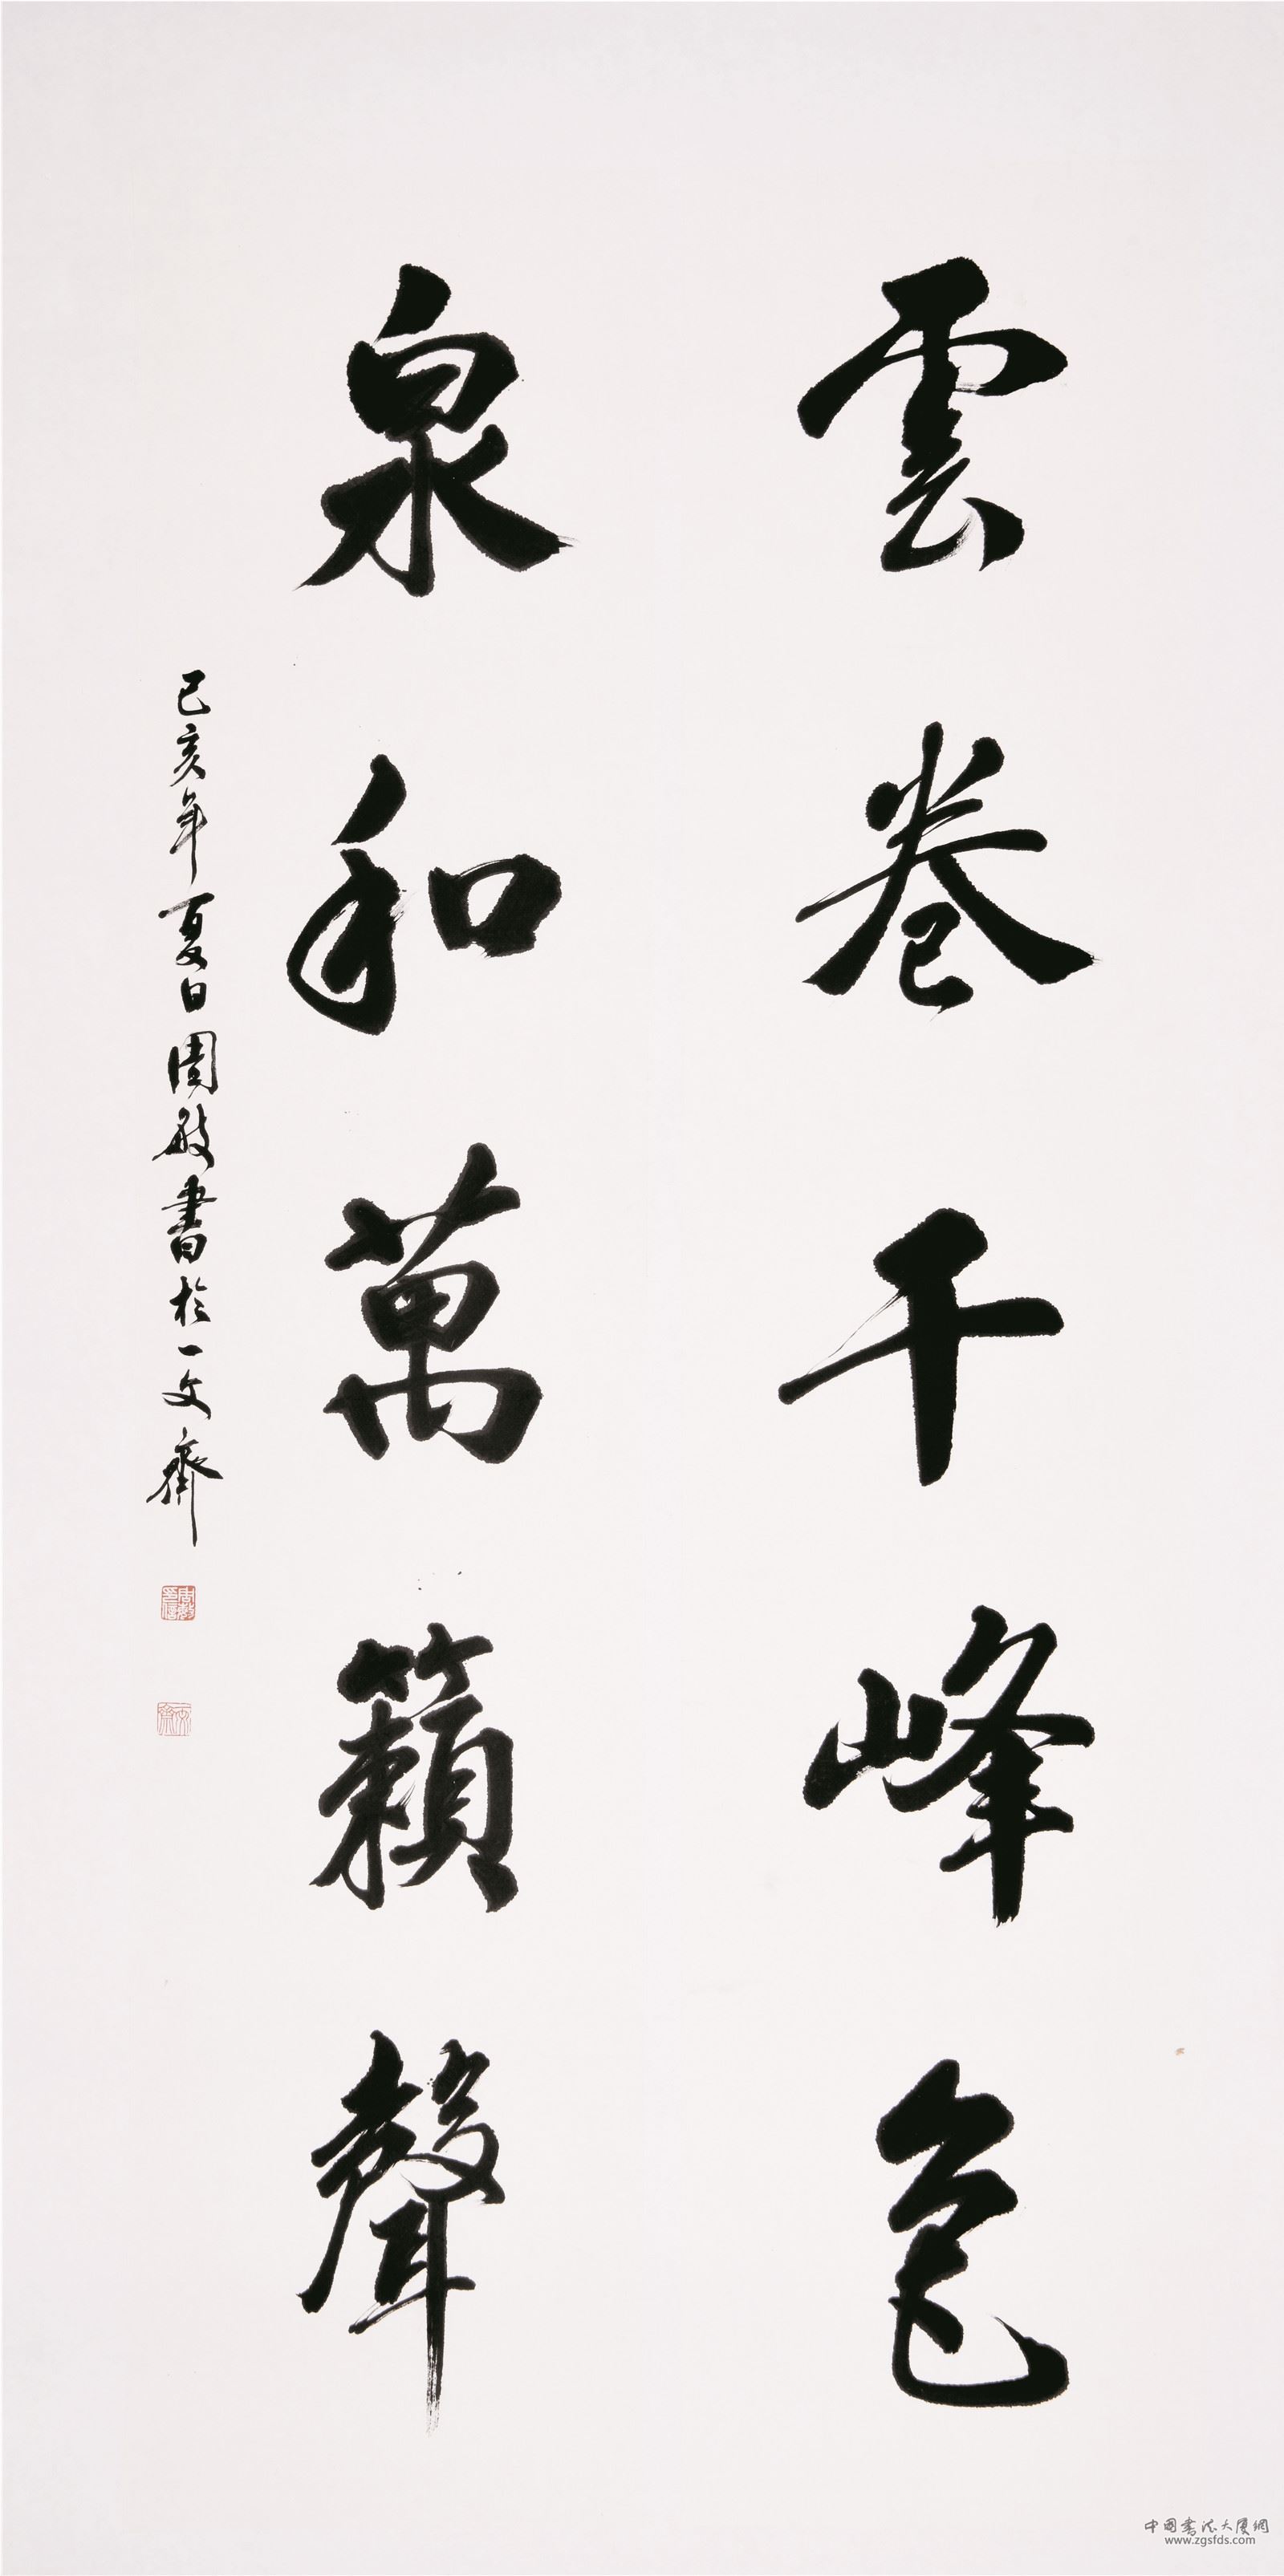 雲卷千峰色
泉和萬籟聲
己亥年夏日周敏書於一文齋
中国书法大厦網
www.zgsfds.com